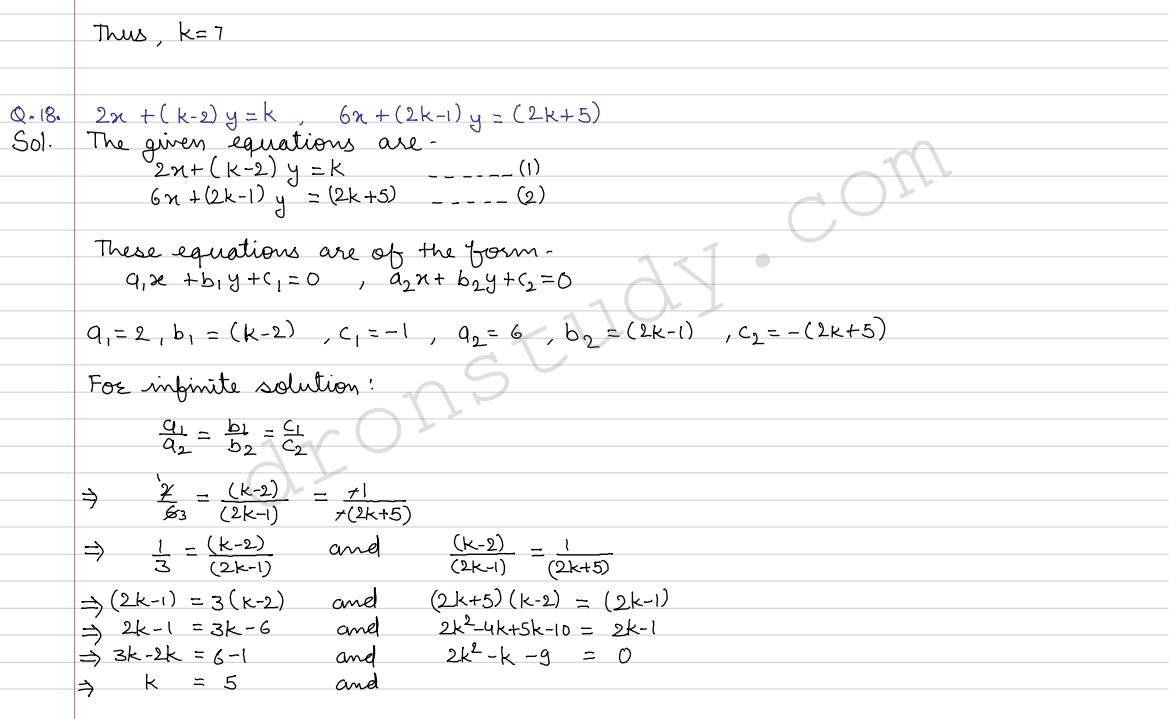 Thus, k=7
Q.18. 2x + (k-2) y = k , 6x + (2k-1) y = (2k+5)
Sol. The given equations are -
2x + (k-2) y = k ------ (1)
6x + (2k-1) y = (2k+5) ----- (2)
These equations are of the form -
a₁x + b₁y + c₁ = 0 , a₂x + b₂y + c₂ = 0
a₁ = 2 , b₁ = (k-2) , c₁ = -1 , a₂ = 6 , b₂ = (2k-1) , c₂ = -(2k+5)
For infinite solution:
a₁/a₂ = b₁/b₂ = c₁/c₂
⇒ 2/6 1/3 = (k-2)/(2k-1) = -1/-(2k+5)
⇒ 1/3 = (k-2)/(2k-1) and (k-2)/(2k-1) = 1/(2k+5)
⇒ (2k-1) = 3(k-2) and (2k+5)(k-2) = (2k-1)
⇒ 2k-1 = 3k-6 and 2k²-4k+5k-10 = 2k-1
⇒ 3k-2k = 6-1 and 2k²-k-9 = 0
⇒ k = 5 and
dronstudy.com